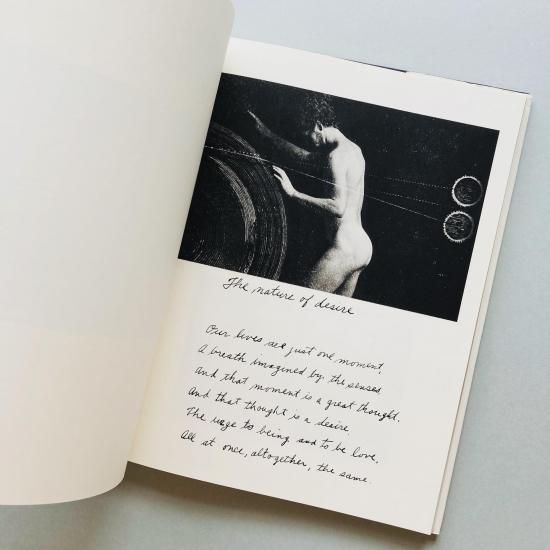 The nature of desire
Our lives are just one moment,
A breath imagined by the senses
And that moment is a great thought.
And that thought is a desire
The urge to being and to be love,
All at once, altogether, the same.